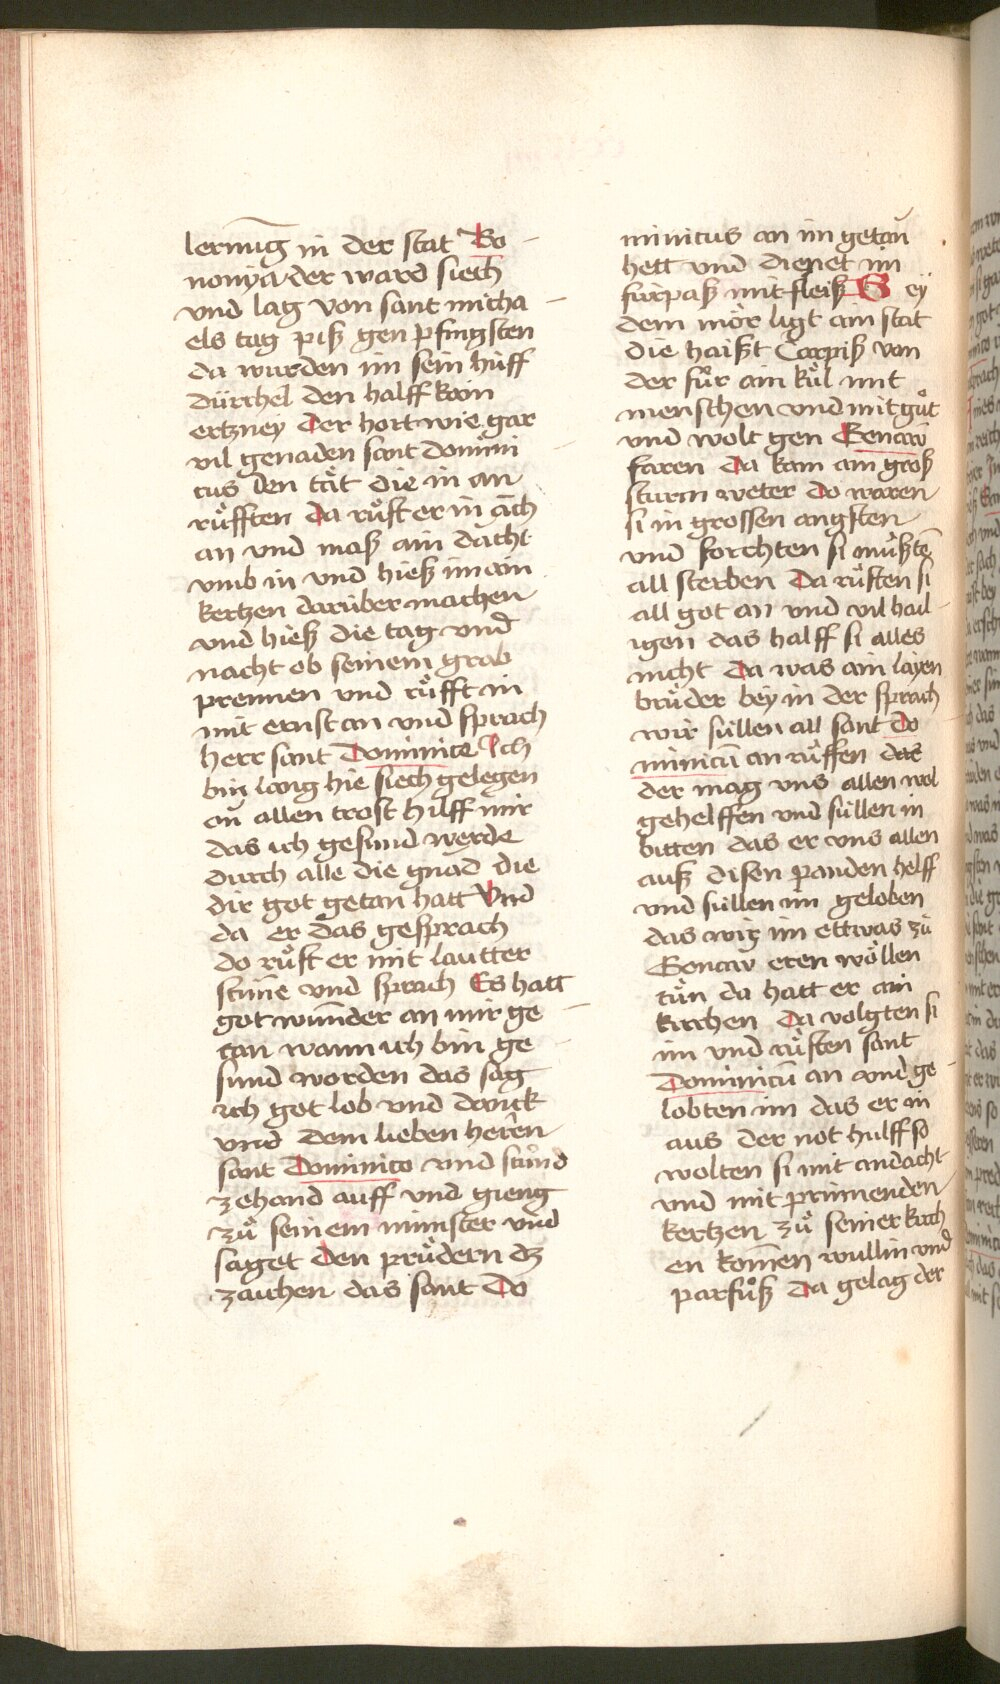 lernūg in der stat Bo
nonya der ward siech
vnd lag von sant micha
els tag piß gen pfingsten
da wurden im sein hüff
dürchel den halff kain
ertzney Der hort wie gar
vil genaden sant Domini
cus den tät die in an
růfften Da růft er in āch
an vnd maß ain dacht
vmb in vnd hieß im ain
kertzen darüber machen
vnd hieß die tag vnd
nacht ob seinem grab
prennen vnd růfft in
mit ernst an vnd sprach
herr sant Dominice Ich
bin lang hie siech gelegen
on allen trost hilff mir
das ich gesund werde
durch alle die gnad die
dir got getan hatt Vnd
da er das gesprach
do růft er mit lautter
stime vnd sprach Es hatt
got wunder an mir ge
tan wann ich bin ge
sund worden das sag
ich got lob vnd danck
vnd dem lieben herren
sant Dominico vnd stůnd
zehand auff vnd gieng
zů seinem minster vnd
saget den prüdern dz
zaichen das sant Do
minicus an im getan
hett vnd dienet im
fürpaß mit fleiß B eÿ
dem mör ligt ain stat
die haißt Carpiß von
der fůr ain kůl mit
menschen vnd mit gůt
vnd wolt gen Gencaw
faren Da kam ain groß
sturm weter Do waren
si in grossen angsten
vnd forchten si müßtē
all sterben Da růften si
all got an vnd vil hail
igen das halff si alles
nicht Da was ain layen
brůder bey in der sprach
wir süllen all sant Do
minicū an růffen das
der mag vns allen wol
gehelffen vnd süllen in
bitten das er vns allen
auß disen panden helff
vnd süllen im geloben
das wir im ettwas zů
Gencaw eren wöllen
tůn da hatt er ain
kirchen Da volgten si
im vnd růften sant
Dominicū an vnd ge
lobten im das er in
aus der not hulff so
wolten si mit andacht
vnd mit prinnenden
kertzen zů seiner kirch
en komen wullin vnd
parfůß Da gelag der